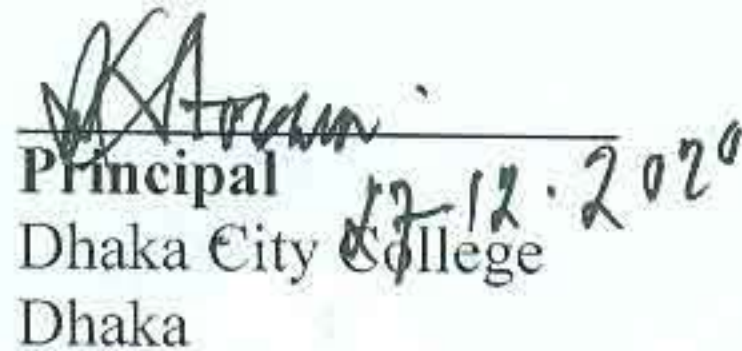 Principal
17.12.2020
Dhaka City College
Dhaka